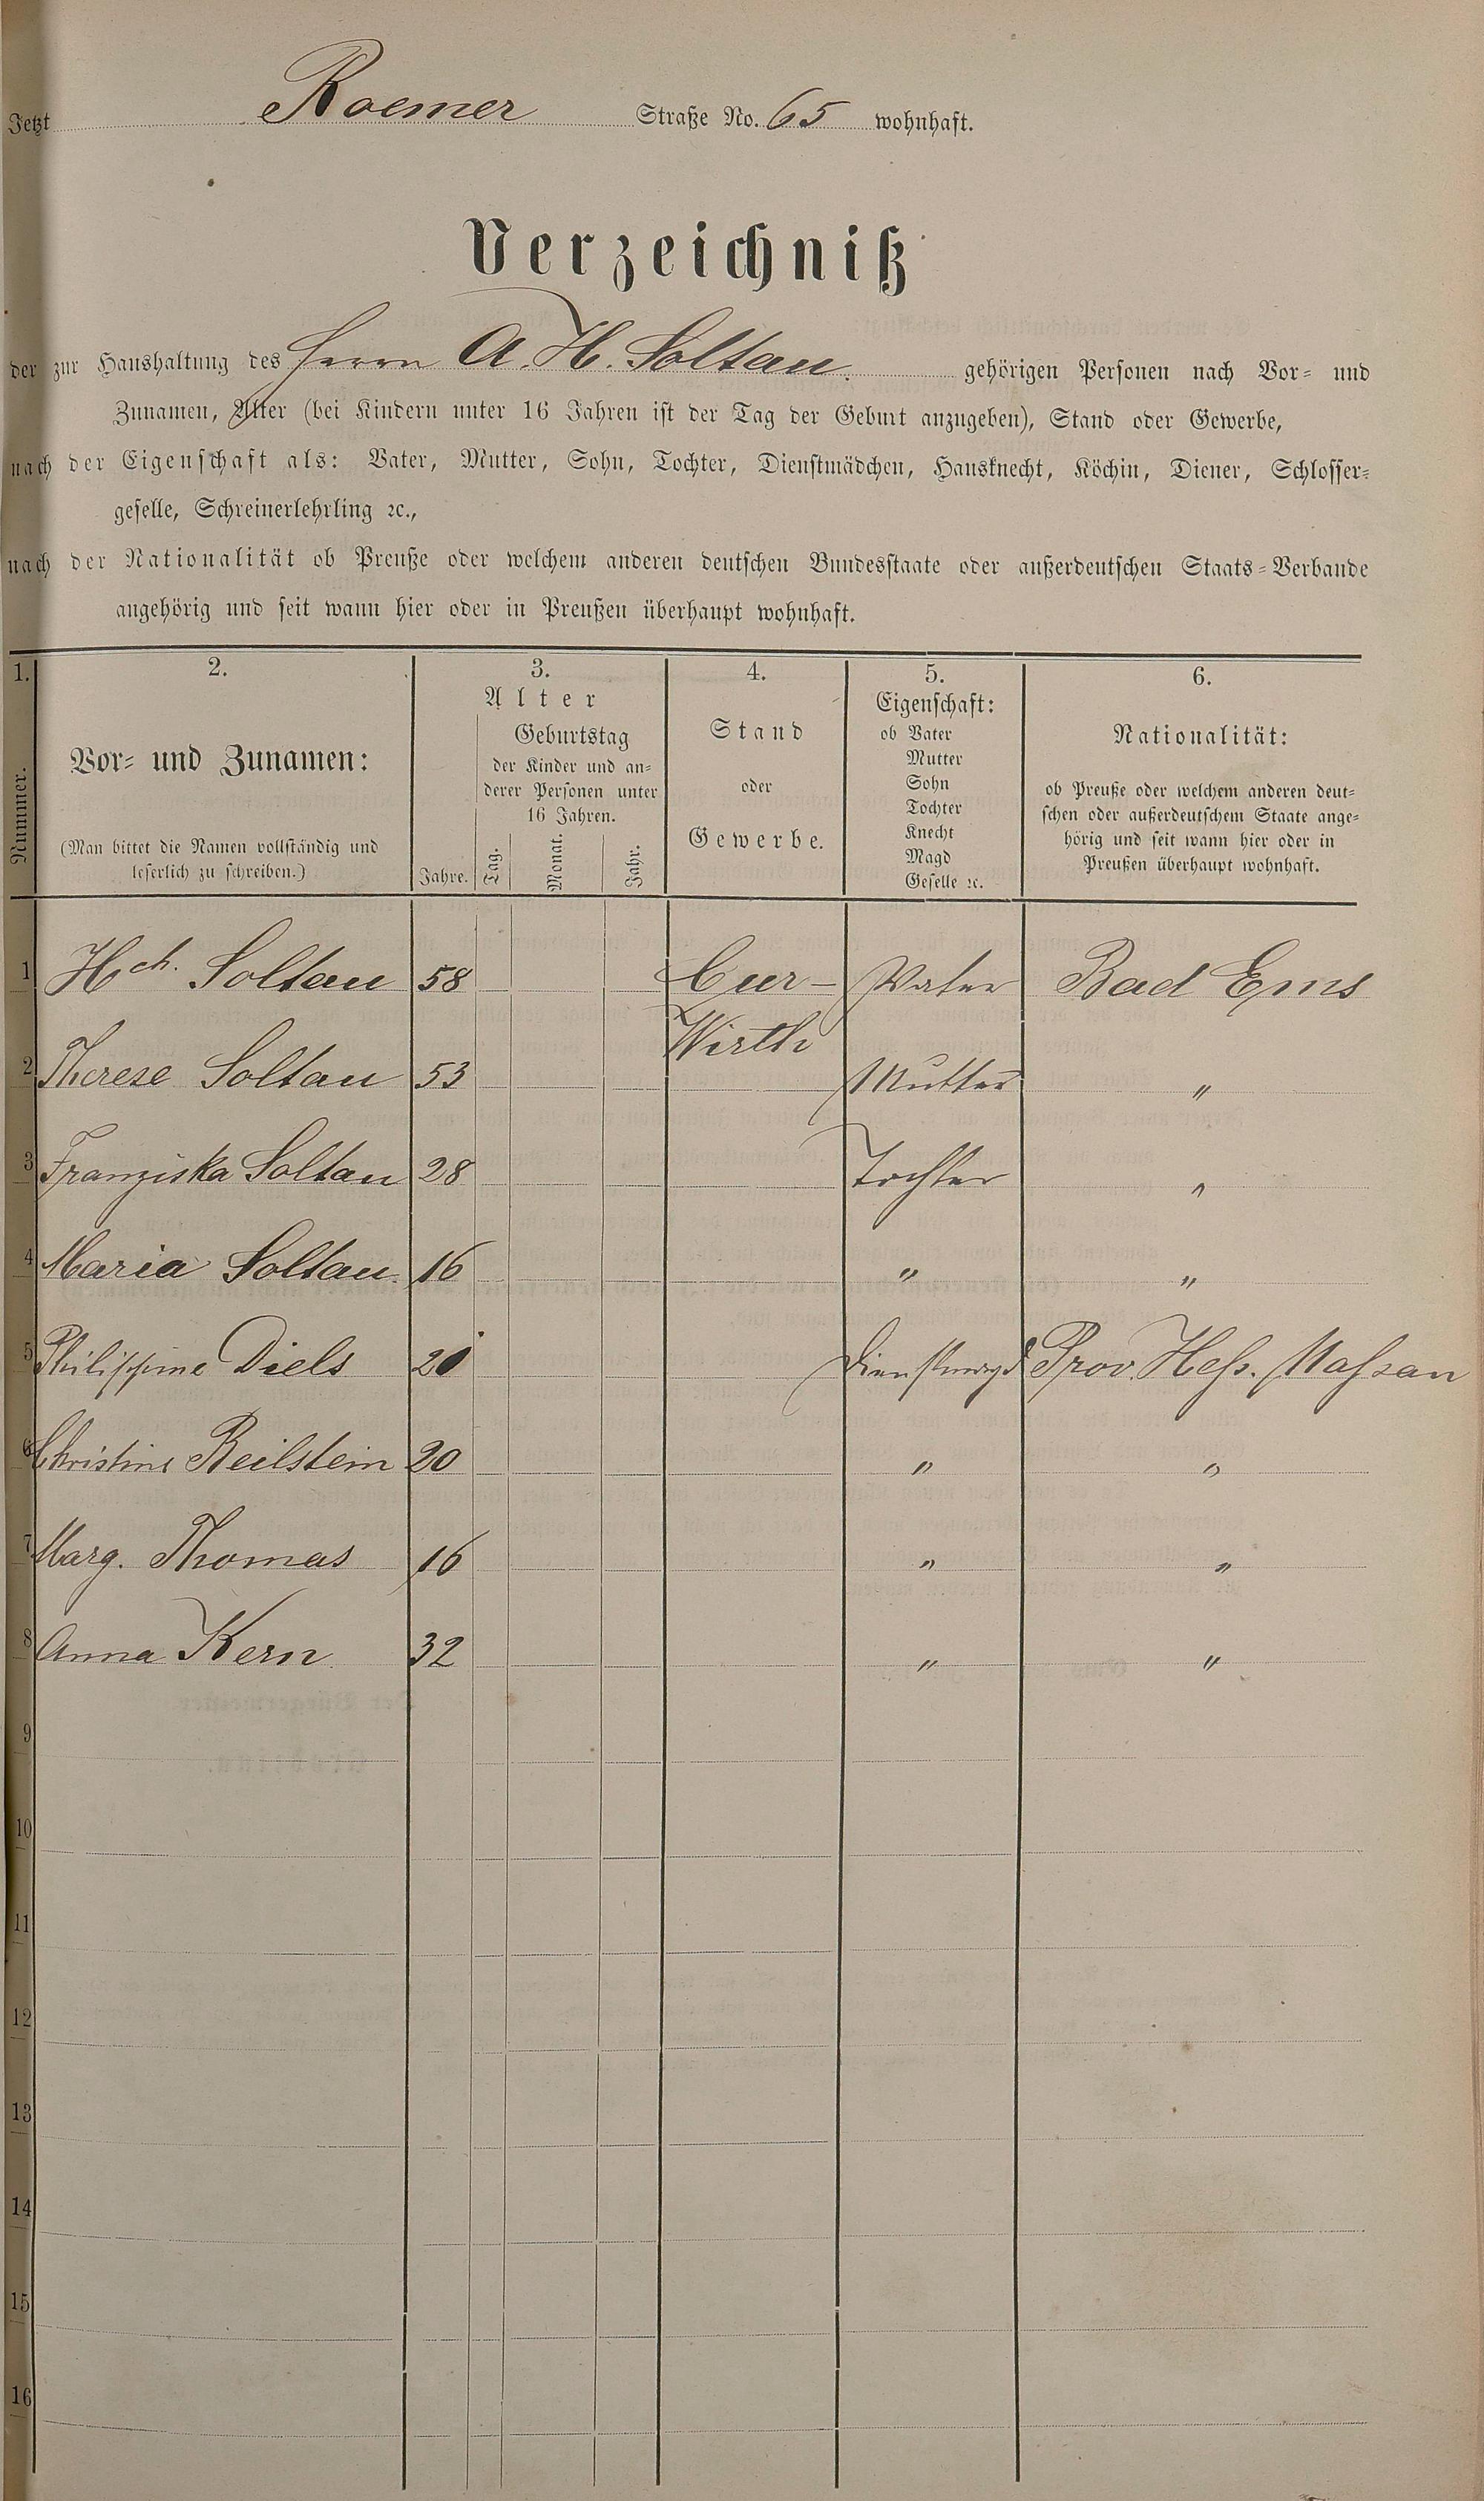 Jetzt Roemer Straße No. 65 wohnhaft.
Verzeichniß
der zur Haushaltung des Herrn A. H. Soltau. gehörigen Personen nach Vor- und
Zunamen, Alter (bei Kindern unter 16 Jahren ist der Tag der Geburt anzugeben), Stand oder Gewerbe,
nach der Eigenschaft als: Vater, Mutter, Sohn, Tochter, Dienstmädchen, Hausknecht, Köchin, Diener, Schlosser-
geselle, Schreinerlehrling ꝛc.,
nach der Nationalität ob Preuße oder welchem anderen deutschen Bundesstaate oder außerdeutschen Staats-Verbande
angehörig und seit wann hier oder in Preußen überhaupt wohnhaft.
1.
Nummer.
2.
Vor- und Zunamen:
(Man bittet die Namen vollständig und
leserlich zu schreiben.)
3.
Alter
Jahre.
Geburtstag
der Kinder und an-
derer Personen unter
16 Jahren.
Tag. Monat. Jahr.
4.
Stand
oder
Gewerbe.
5.
Eigenschaft:
ob Vater
Mutter
Sohn
Tochter
Knecht
Magd
Geselle ꝛc.
6.
Nationalität:
ob Preuße oder welchem anderen deut-
schen oder außerdeutschem Staate ange-
hörig und seit wann hier oder in
Preußen überhaupt wohnhaft.
1 Hch. Soltau 58 Cur- Vater Bad Ems
Wirth
2 Therese Soltau 53 Mutter "
3 Franziska Soltau 28 Tochter "
4 Maria Soltau. 16 " "
5 Philippine Diels 20 Dienstmagd Prov. Heß. Naßau
6 Christine Beilstein 20 " "
7 Marg. Thomas 16 " "
8 Anna Kern. 32 " "
9
10
11
12
13
14
15
16